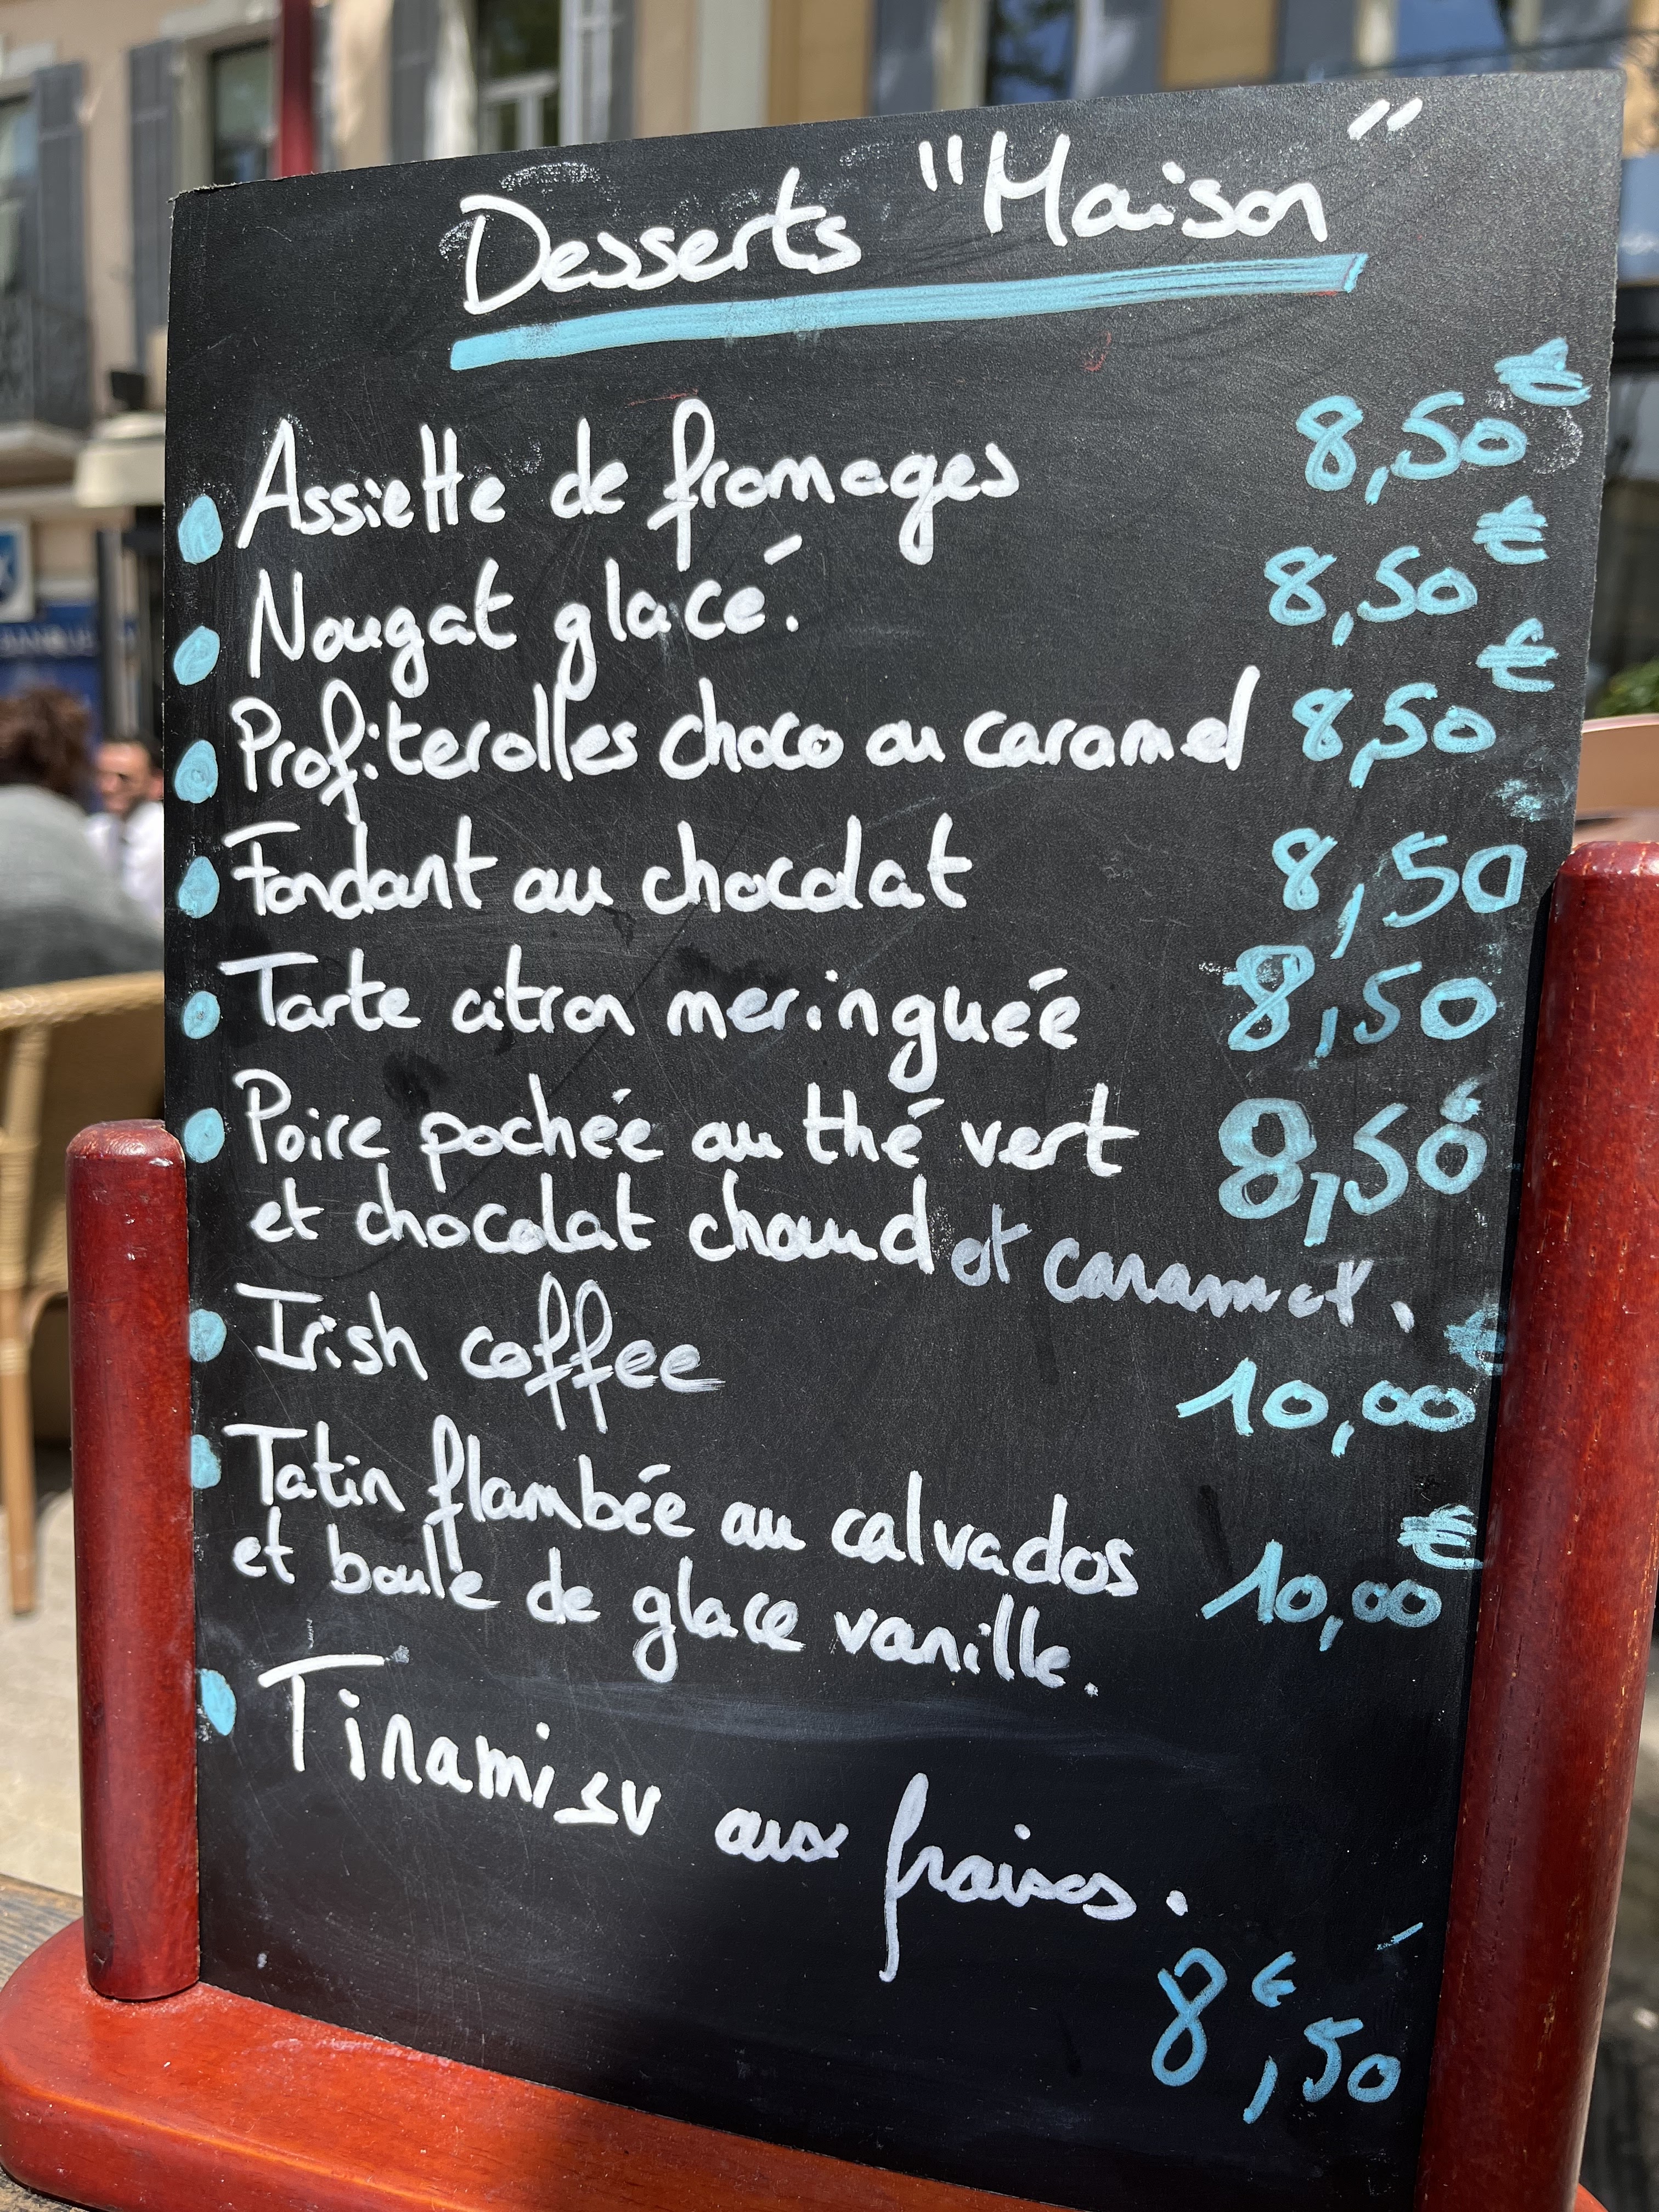 Desserts "Maison"
Assiette de fromages 8,50€
Nougat glacé. 8,50€
Profiterolles choco ou caramel 8,50€
Fondant au chocolat 8,50
Tarte citron meringuée 8,50
Poire pochée au thé vert 8,50€
et chocolat chaud et caramel.
Irish coffee 10,00€
Tatin flambée au calvados 10,00€
et boule de glace vanille.
Tiramisu aux fraises.
8€,50
BANQUE